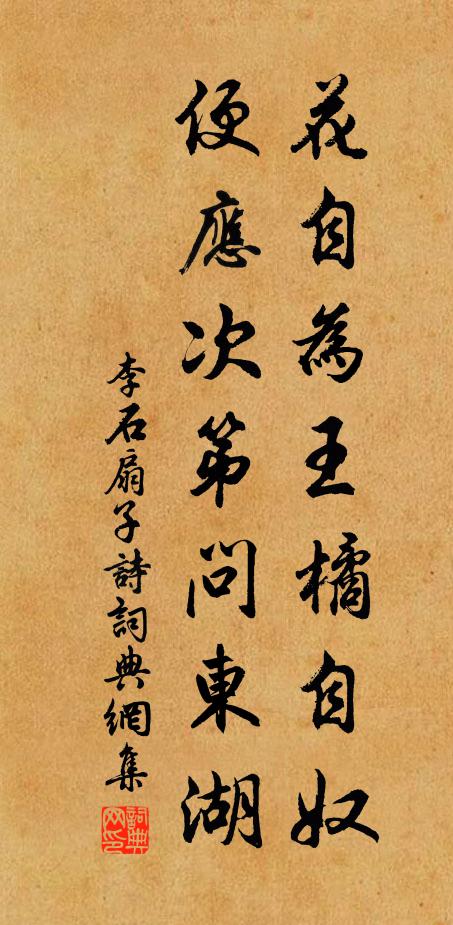 花自為王橘自奴
便應次第問東湖
李石扇子詩詞典網集
詞典網印